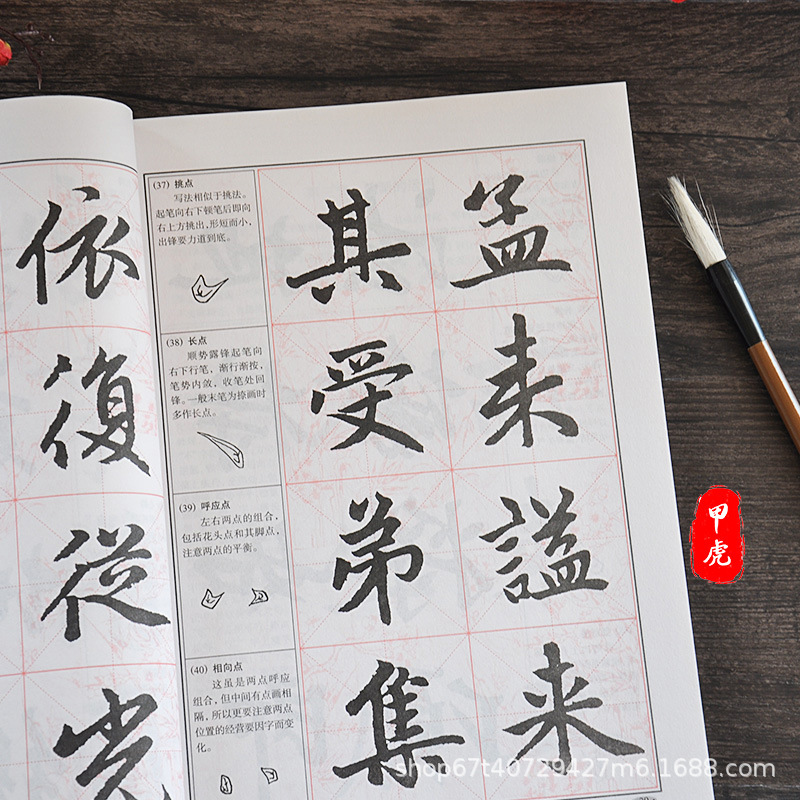 依
復
從
光
(37) 挑点
写法相似于挑法。
起笔向右下顿笔后即向
右上方挑出,形短而小,
出锋要力道到底。
(38) 长点
顺势露锋起笔向
右下行笔,渐行渐按,
笔势内敛,收笔处回
锋。一般末笔为捺画时
多作长点。
(39) 呼应点
左右两点的组合,
包括花头点和其脚点,
注意两点的平衡。
(40) 相向点
这虽是两点呼应
组合,但中间有点画相
隔,所以更要注意两点
位置的经营要因字而变
化。
其 孟
受 来
弟 謚
集 来
甲虎
shop67t40729427m6.1688.com